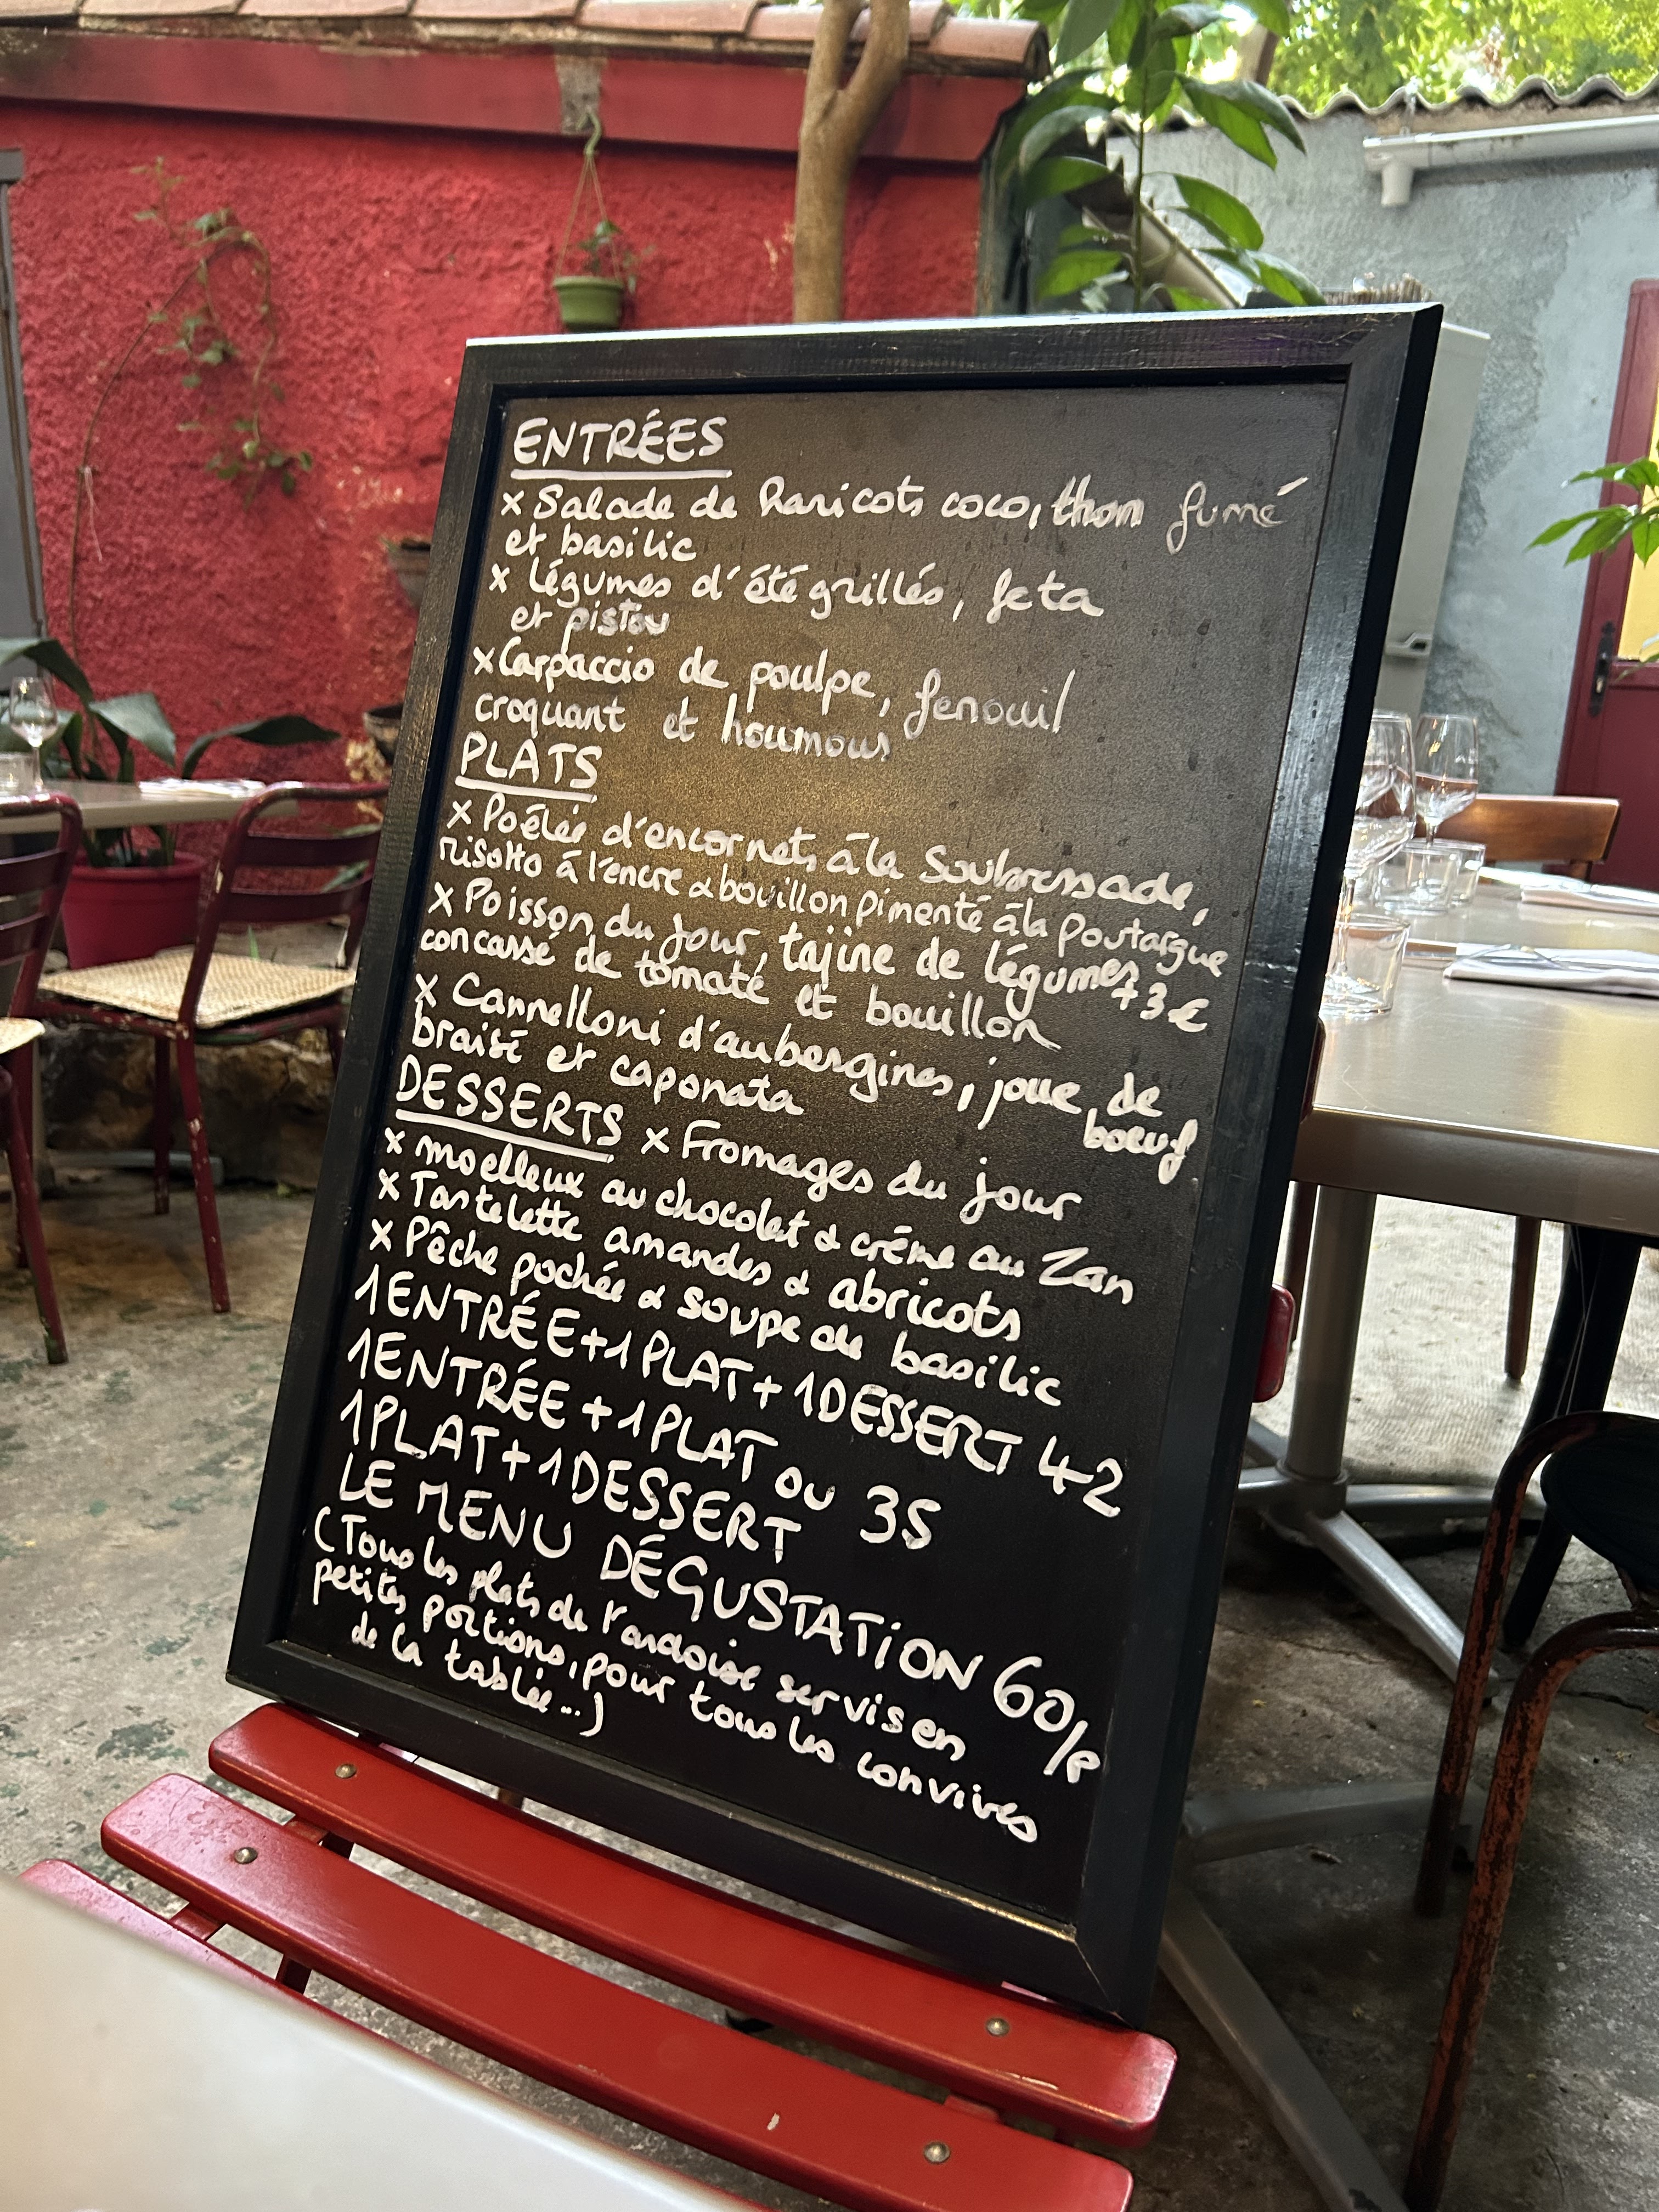 ENTRÉES
x Salade de haricots coco, thon fumé
et basilic
x légumes d'été grillés, feta
et pistou
x Carpaccio de poulpe, fenouil
croquant et houmous
PLATS
x Poêlée d'encornets à la Soubressade,
risotto à l'encre & bouillon pimenté à la poutargue
x Poisson du jour, tajine de légumes +3€
concassé de tomate et bouillon
x Cannelloni d'aubergines, joue de boeuf
braisé et caponata
DESSERTS x Fromages du jour
x moelleux au chocolat & crème au Zan
x Tartelette amandes & abricots
x Pêche pochée & soupe de basilic
1 ENTRÉE + 1 PLAT + 1 DESSERT 42
1 ENTRÉE + 1 PLAT ou 35
1 PLAT + 1 DESSERT
LE MENU DÉGUSTATION 60/P
(Tous les plats de l'ardoise servis en
petites portions, pour tous les convives
de la tablée...)